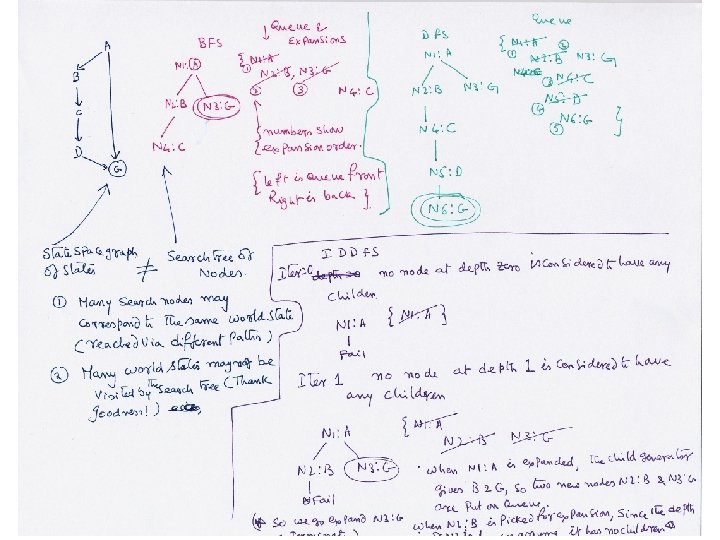 A
B
C
D
G
BFS
N1:A
N2:B
N3:G
N4:C
Queue &
Expansions
{ N1:A
① N2:B, N3:G
② ③ N4:C
{ numbers show
expansion order.
{ left is Queue front
Right is back }
DFS
N1:A
N2:B N3:G
N4:C
N5:D
N6:G
Queue
{ N1:A
① ② N2:B N3:G
③ N4:C
N5:D
④ N6:G }
⑤
State Space graph
of States
≠
Search Tree of
Nodes.
① Many search nodes may
correspond to the same world state
(reached via different paths)
② Many world states may not be
visited by the search tree (Thank
goodness!)
IDDFS
Iter:0 no node at depth zero is considered to have any
children
N1:A { N1:A }
Fail
Iter 1 no node at depth 1 is considered to have
any children
N1:A { N1:A
N2:B N3:G
N2:B N3:G
Fail
• When N1:A is expanded, the child generator
gives B & G, so two new nodes N2:B & N3:G
are put on Queue.
So we go expand N3:G
When N2:B is picked for expansion, since the depth
it has no children